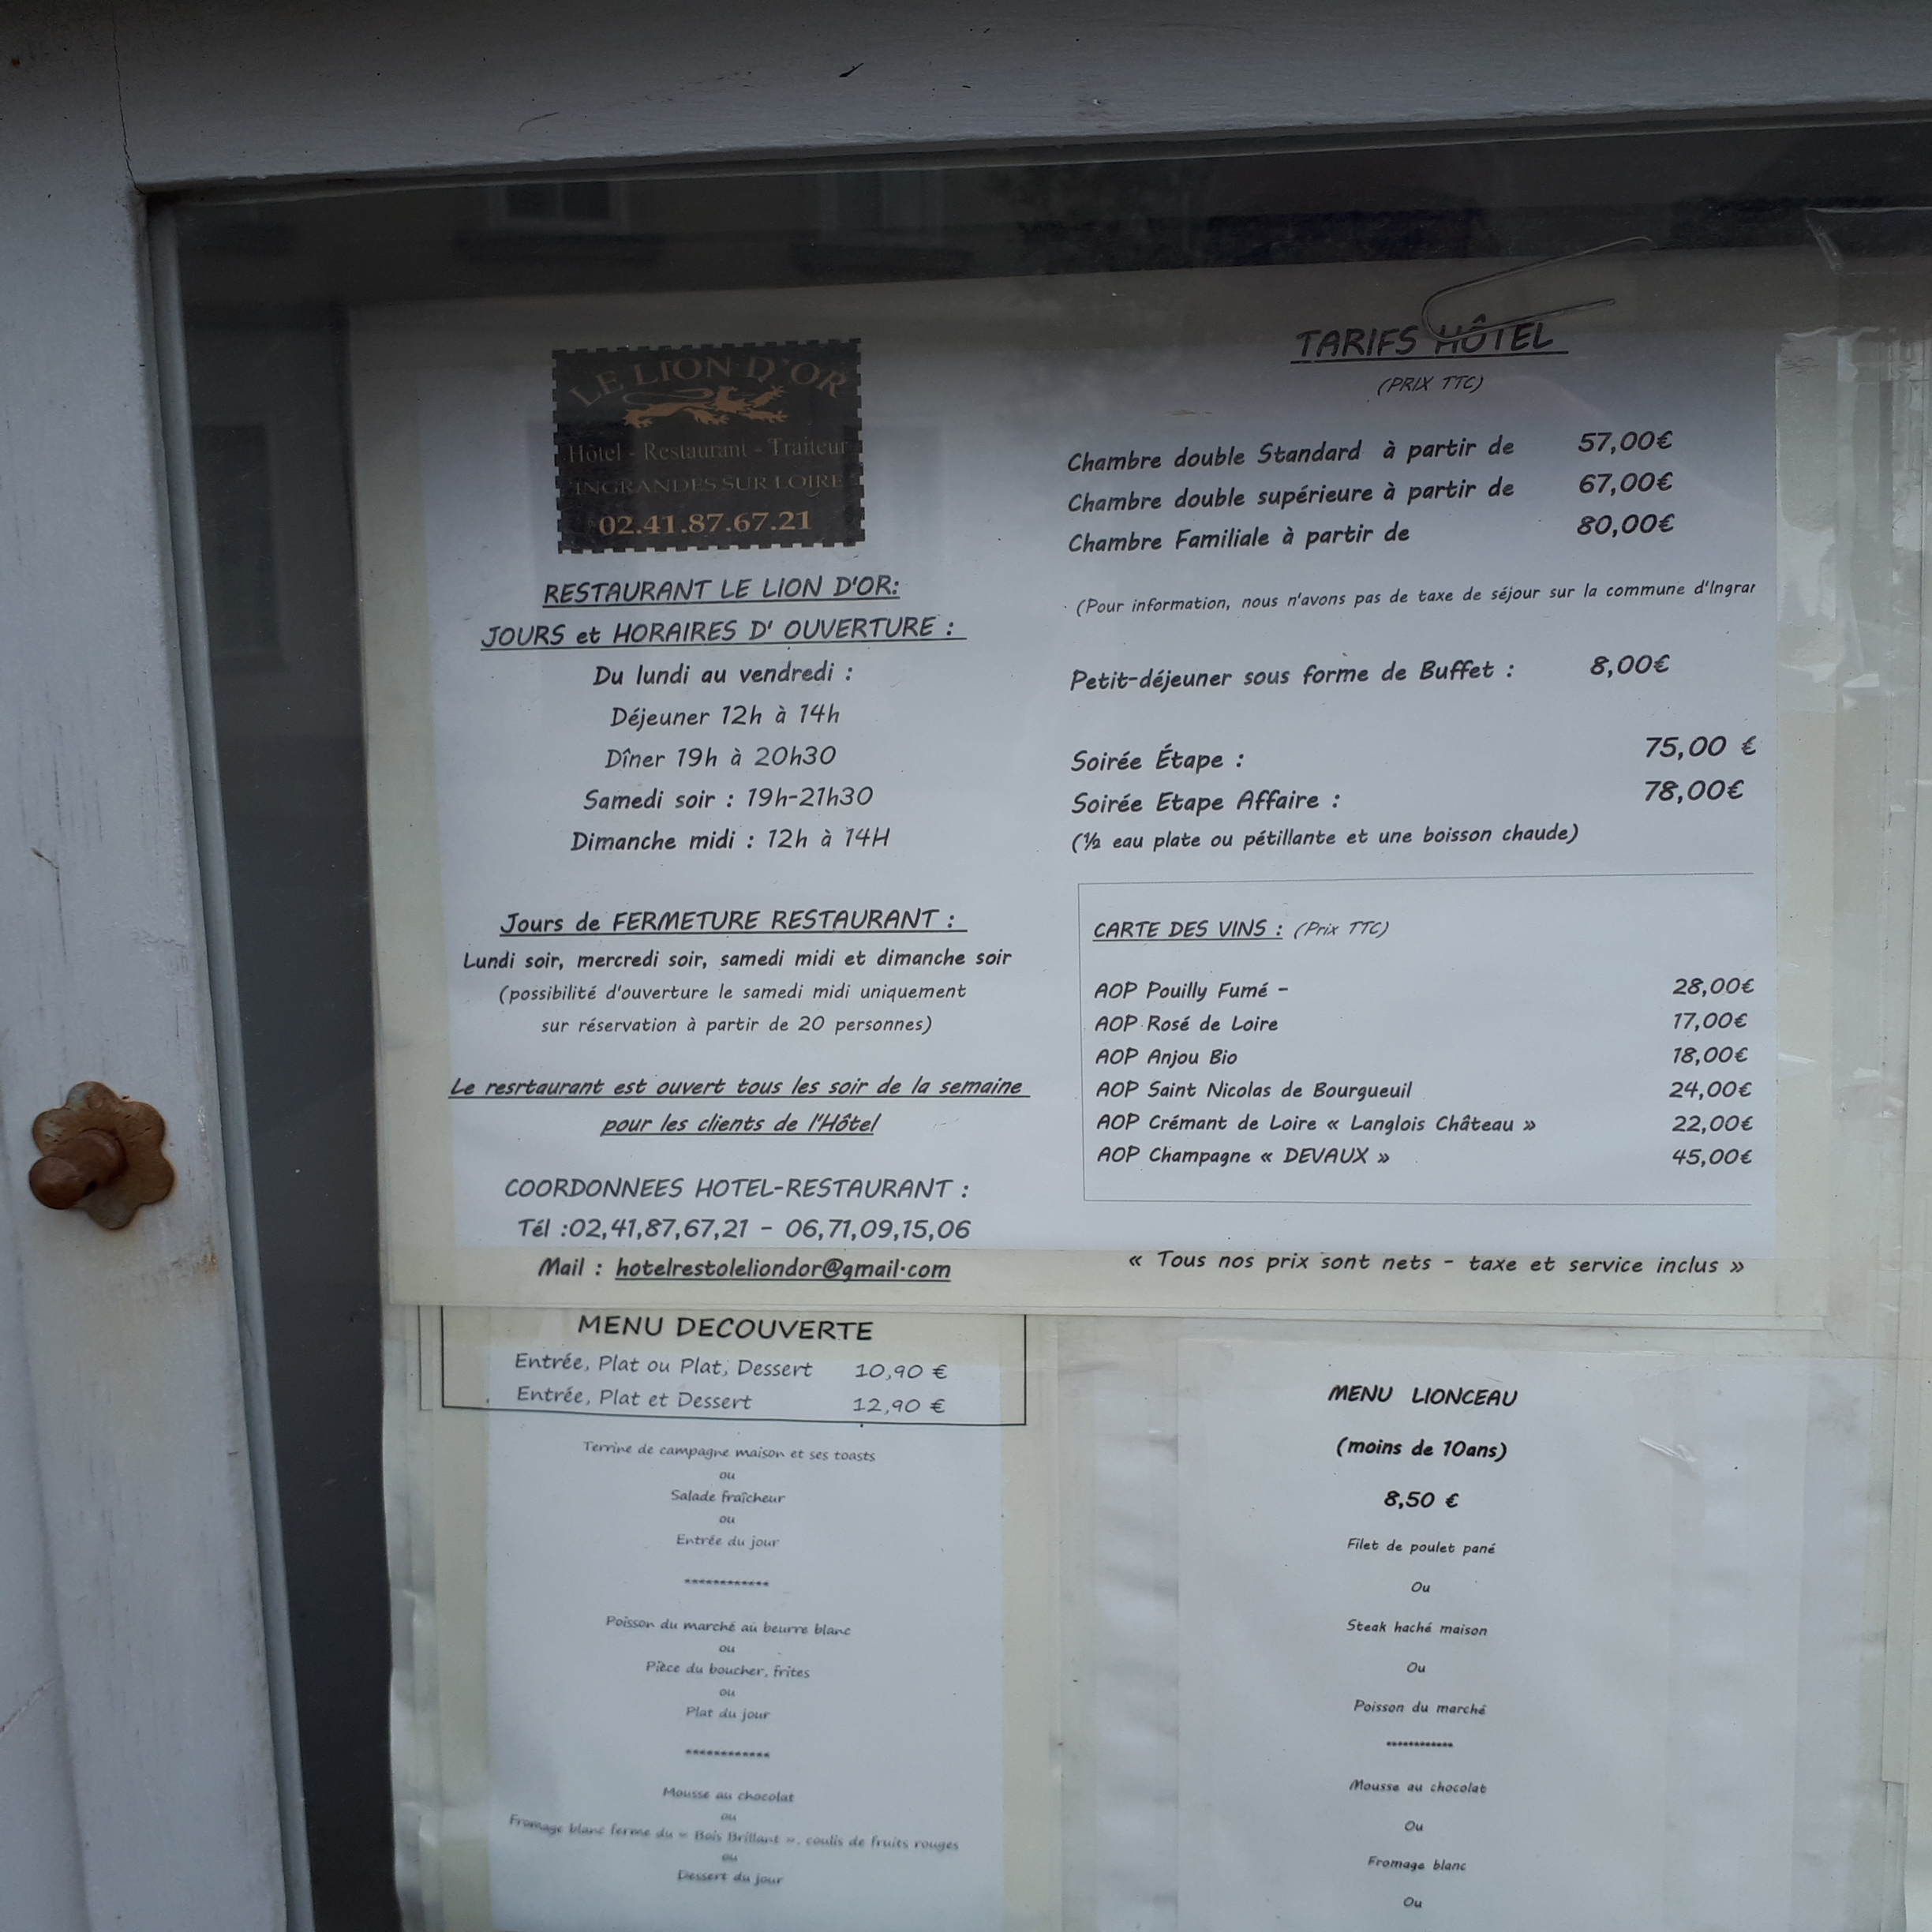 LE LION D'OR
Hôtel - Restaurant - Traiteur
INGRANDES SUR LOIRE
02.41.87.67.21
RESTAURANT LE LION D'OR:
JOURS et HORAIRES D' OUVERTURE :
Du lundi au vendredi :
Déjeuner 12h à 14h
Dîner 19h à 20h30
Samedi soir : 19h-21h30
Dimanche midi : 12h à 14H
Jours de FERMETURE RESTAURANT :
Lundi soir, mercredi soir, samedi midi et dimanche soir
(possibilité d'ouverture le samedi midi uniquement
sur réservation à partir de 20 personnes)
Le resrtaurant est ouvert tous les soir de la semaine
pour les clients de l'Hôtel
COORDONNEES HOTEL-RESTAURANT :
Tél :02,41,87,67,21 - 06,71,09,15,06
Mail : hotelrestoleliondor@gmail.com
TARIFS HÔTEL
(PRIX TTC)
Chambre double Standard à partir de 57,00€
Chambre double supérieure à partir de 67,00€
Chambre Familiale à partir de 80,00€
(Pour information, nous n'avons pas de taxe de séjour sur la commune d'Ingrar
Petit-déjeuner sous forme de Buffet : 8,00€
Soirée Étape : 75,00 €
Soirée Etape Affaire : 78,00€
(½ eau plate ou pétillante et une boisson chaude)
CARTE DES VINS : (Prix TTC)
AOP Pouilly Fumé - 28,00€
AOP Rosé de Loire 17,00€
AOP Anjou Bio 18,00€
AOP Saint Nicolas de Bourgueuil 24,00€
AOP Crémant de Loire « Langlois Château » 22,00€
AOP Champagne « DEVAUX » 45,00€
« Tous nos prix sont nets - taxe et service inclus »
MENU DECOUVERTE
Entrée, Plat ou Plat, Dessert 10,90 €
Entrée, Plat et Dessert 12,90 €
Terrine de campagne maison et ses toasts
ou
Salade fraîcheur
ou
Entrée du jour
************
Poisson du marché au beurre blanc
ou
Pièce du boucher, frites
ou
Plat du jour
************
Mousse au chocolat
ou
Fromage blanc ferme du « Bois Brillant », coulis de fruits rouges
ou
Dessert du jour
MENU LIONCEAU
(moins de 10ans)
8,50 €
Filet de poulet pané
Ou
Steak haché maison
Ou
Poisson du marché
************
Mousse au chocolat
Ou
Fromage blanc
Ou